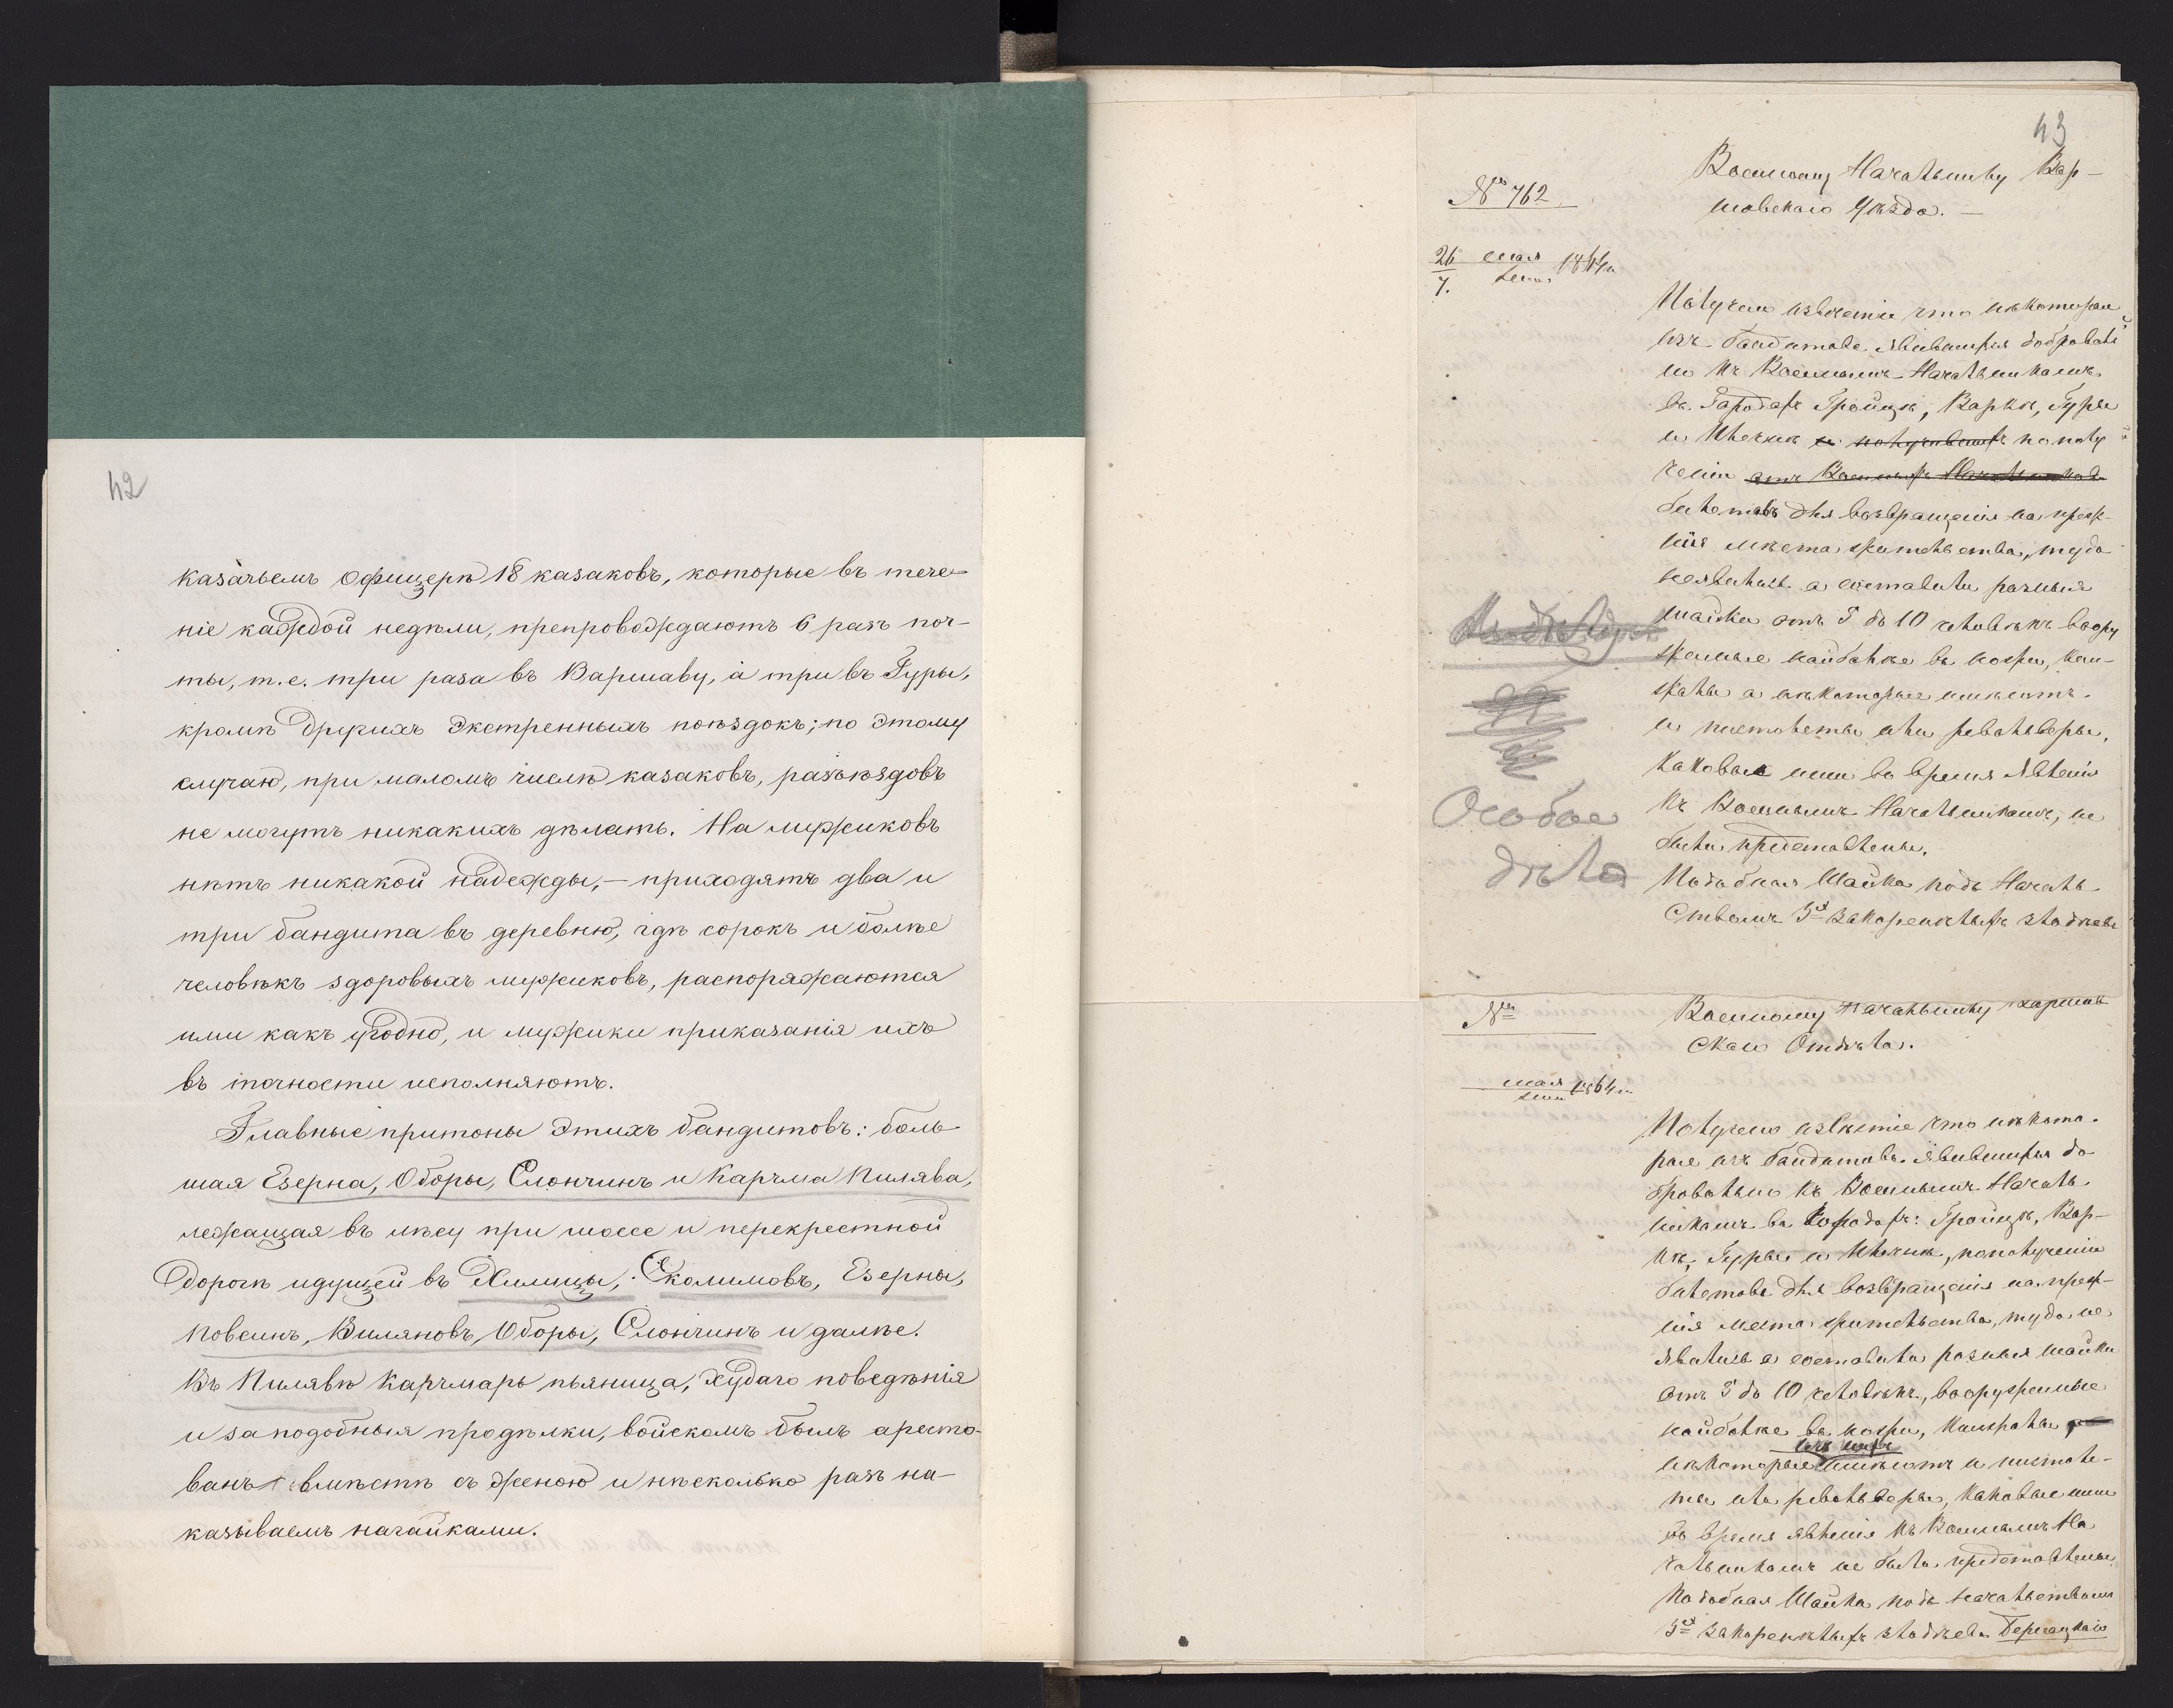 42
казачьемъ офицерѣ 18 казаковъ, которые въ тече-
ніе каждой недѣли, препровождаютъ 6 разъ поч-
ты, т.е. три раза въ Варшаву, а три въ Гуры,
кромѣ другихъ экстренныхъ поѣздокъ; по этому
случаю, при маломъ числѣ казаковъ, разъѣздовъ
не могутъ никакихъ дѣлать. На мужиковъ
нѣтъ никакой надежды, — приходятъ два и
три бандита въ деревню, гдѣ сорокъ и болѣе
человѣкъ здоровыхъ мужиковъ, распоряжаются
ими какъ угодно, и мужики приказанія ихъ
въ точности исполняютъ.
Главные притоны этихъ бандитовъ: боль-
шая Езерна, Оборы, Слончинъ и Карчма Пилява,
лежащая въ лѣсу при шоссе и перекрестной
дорогѣ идущей въ Хилицы, Сколимовъ, Езерны,
Повсинъ, Виляновъ, Оборы, Слончинъ и далѣе.
Въ Пилявѣ Карчмарь пьяница, худаго поведѣнія
и за подобныя продѣлки, войскомъ былъ аресто-
ванъ вмѣстѣ съ женою и нѣсколько разъ на-
казываемъ нагайками.
43
№ 762
Военному Начальнику Вар-
шавскаго Уѣзда. —
26 мая 1864 г.
7. Іюня
Получено извѣстіе что нѣкоторые
изъ бандитовъ явившихся добровол
но къ Военнымъ Начальникамъ
въ Городахъ Гройцѣ, Варкѣ, Гурѣ
и по полу
ченіи отъ Военныхъ Начальниковъ
билетовъ для возвращенія на преж-
нія мѣста жительства, туда
неявились а составили разныя
шайки отъ 5 до 10 человѣкъ воору
женные наиболѣе въ косы, кин-
жалы а нѣкоторые имѣютъ
и пистолеты или револьверы,
каковые ими во время явленія
къ Военнымъ Начальникамъ, не
были представлены.
Подобная Шайка подъ Началь
ствомъ 3х закоренѣлыхъ злодѣевъ
Особое
дѣло
№
Военному Начальнику Варшав
скаго Отдѣла.
мая 1864 г.
іюня
Получено извѣстіе что нѣкото-
рые изъ бандитовъ явившихся до
бровольно къ Военнымъ Началь
никамъ въ Городахъ: Гройцѣ, Вар-
кѣ, Гурѣ и по полученіи
билетовъ для возвращенія на преж-
нія места жительства, туда не
явились а составили разныя шайки
отъ 5 до 10 человѣкъ, вооруженные
наиболѣе въ косы, кинжалы,
изъ нихъ
нѣкоторые имѣютъ и пистоле-
ты или револьверы, каковые ими
во время явленія къ Военнымъ На
чальникамъ не были представлены
Подобная Шайка подъ начальствомъ
3х закоренѣлыхъ злодѣевъ